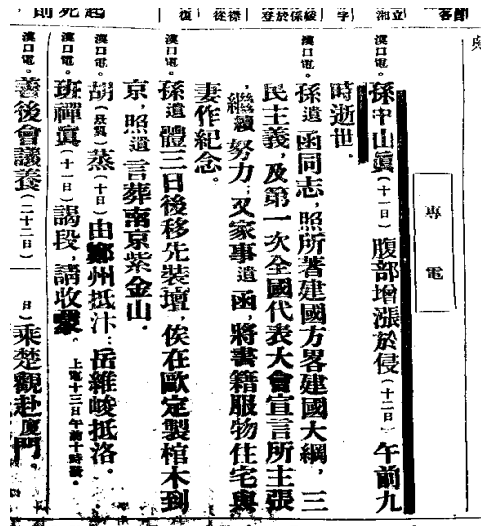 專電
漢口電。孫中山眞（十一日）腹部增漲於侵（十二日）午前九
時逝世。
漢口電。孫遺函同志，照所著建國方畧建國大綱，三
民主義，及第一次全國代表大會宣言所主張
繼續努力；又家事遺函，將書籍服物住宅與
妻作紀念。
漢口電。孫遺體三日後移先裝壇，俟在歐定製棺木到
京，照遺言葬南京紫金山。
漢口電。胡（景翼）蒸（十日）由鄭州抵汴；岳維峻抵洛。
漢口電。班禪眞（十一日）謁段，請收蒙。上電十三日午前十時發。
善後會議養（二十二日）
日）乘楚觀赴廈門。